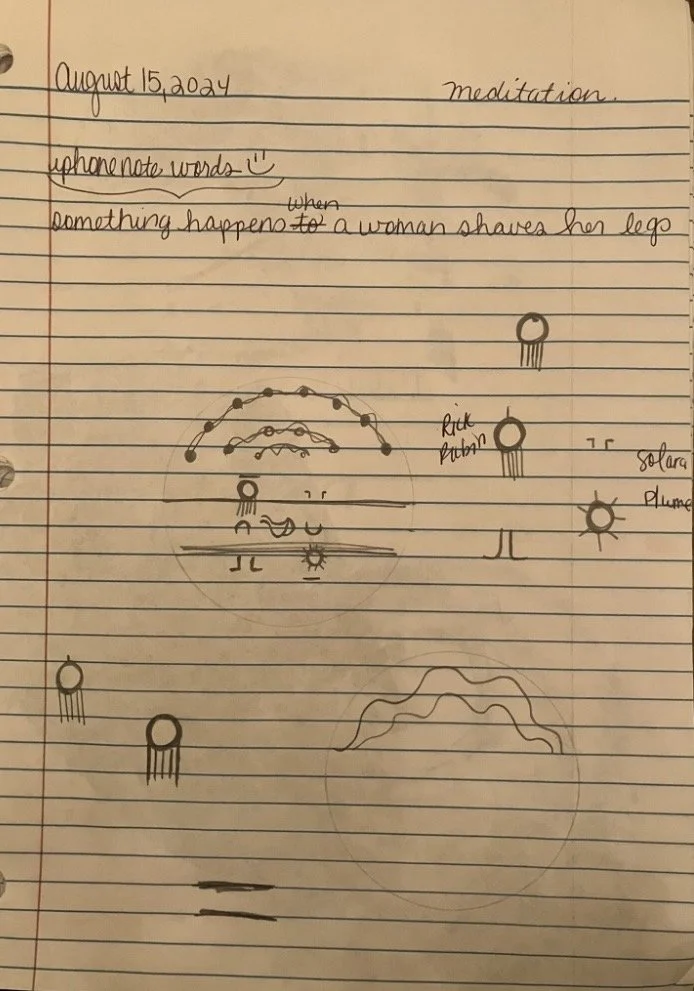 August 15, 2024
meditation.
iphone note words
something happens to when a woman shaves her legs
Rick
Rubin
Solara
Plume